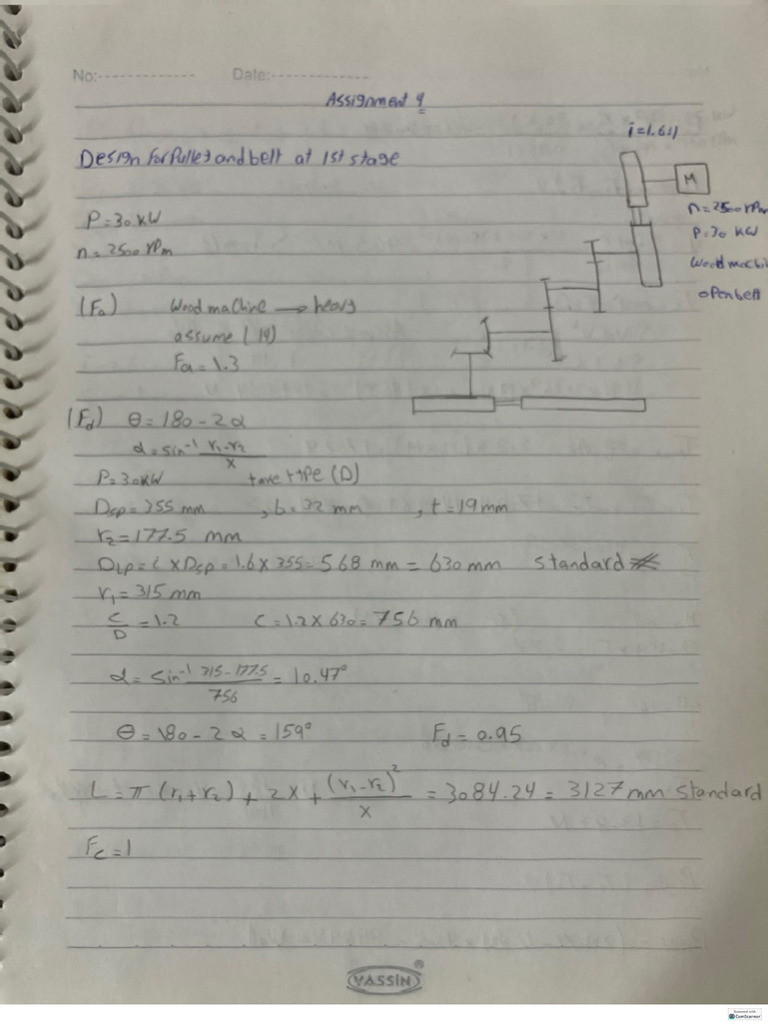 No:------------- Date:-------------
Assignment 4
i=1.6:1
Design for Pulley and belt at 1st stage
M
n=2500 rpm
P=30 kW
P=30 kW
n=2500 rpm
wood machi
open belt
(Fa) wood machine → heavy
assume (19)
Fa=1.3
(Fd) θ=180-2α
α=sin⁻¹ (r₁-r₂)/x
P=30kW take type (D)
Dsp=355 mm , b=32 mm , t=19mm
r₂=177.5 mm
DLP=i×Dsp=1.6×355=568 mm=630mm standard
r₁=315mm
C/D=1.2 C=1.2×630=756 mm
α=sin⁻¹ (315-177.5)/756=10.47°
θ=180-2α=159° Fd=0.95
L=π(r₁+r₂)+2x+(r₁-r₂)²/x=3084.24=3127mm standard
Fc=1
YASSIN®
Scanned with
CamScanner